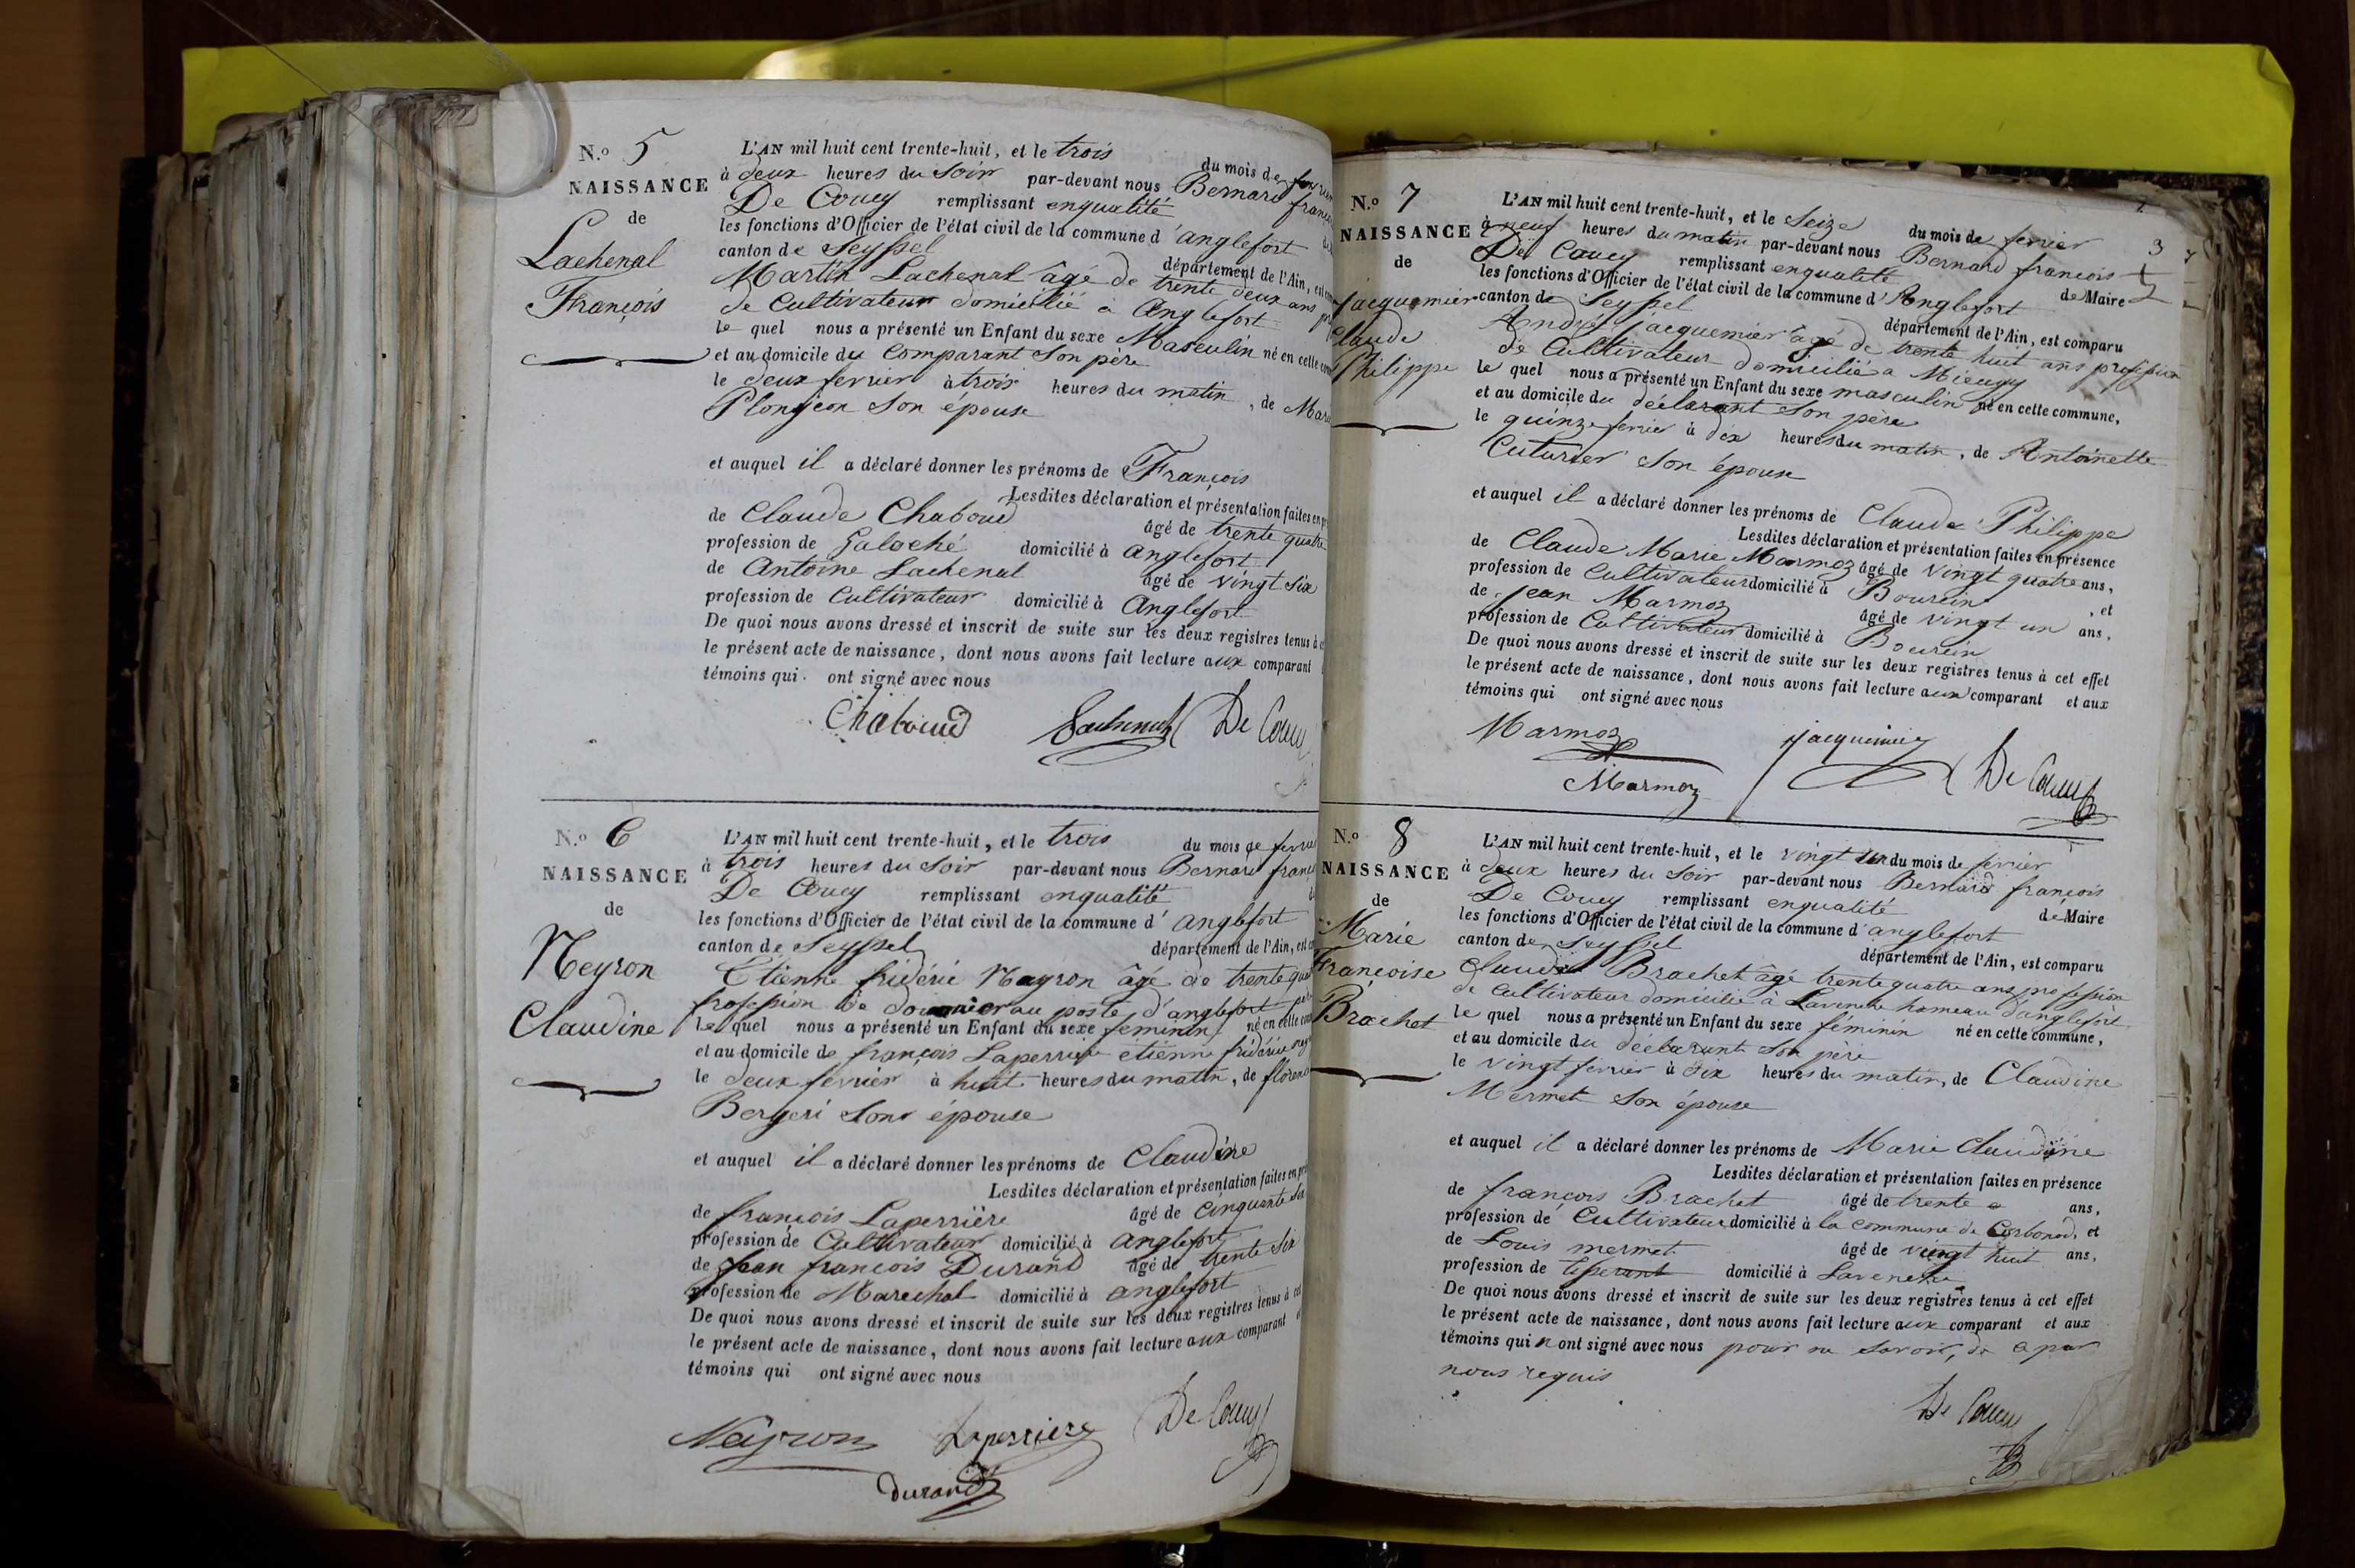 N.º 5
NAISSANCE
de
Lachenal
François
L'AN mil huit cent trente-huit, et le trois du mois de
à deux heures du Soir par-devant nous Bernard
De Coucy remplissant enqualité
les fonctions d'Officier de l'état civil de la commune d'anglefort
canton de Seyssel département de l'Ain,
Martin Lachenal âgé de trente deux ans
de Cultivateur domicilié à Anglefort
le quel nous a présenté un Enfant du sexe Masculin né en cette
et au domicile du Comparant Son père
le deux fevrier à trois heures du matin, de
Plongeon Son épouse
et auquel il a déclaré donner les prénoms de François
Lesdites déclaration et présentation faites
de Claude Chaboud âgé de trente quatre
profession de Galoché domicilié à anglefort
de Antoine Lachenal âgé de vingt Six
profession de Cultivateur domicilié à Anglefort
De quoi nous avons dressé et inscrit de suite sur les deux registres tenus à
le présent acte de naissance, dont nous avons fait lecture aux comparant
témoins qui ont signé avec nous
Chaboud De Coucy
N.º 6
NAISSANCE
de
Neyron
Claudine
L'AN mil huit cent trente-huit, et le trois du mois de
à trois heures du Soir par-devant nous Bernard
De Coucy remplissant enqualité
les fonctions d'Officier de l'état civil de la commune d'anglefort
canton de Seyssel département de l'Ain,
Etienne fridéric Neyron âgé de trente
profession de au poste d'anglefort
le quel nous a présenté un Enfant du sexe féminin né en cette
et au domicile de françois Laperriere étienne fridéric
le deux fevrier à huit heures du matin, de
Bergeri Son épouse
et auquel il a déclaré donner les prénoms de Claudine
Lesdites déclaration et présentation faites
de françois Laperrière âgé de Cinquante
profession de Cultivateur domicilié à anglefort
de Jean françois Durand âgé de trente Six
profession de Marechal domicilié à anglefort
De quoi nous avons dressé et inscrit de suite sur les deux registres tenus à
le présent acte de naissance, dont nous avons fait lecture aux comparant
témoins qui ont signé avec nous
Neyron Laperriere De Coucy
Durand
3
N.º 7
NAISSANCE
de
Jacquemier
Claude
Philippe
L'AN mil huit cent trente-huit, et le Seize du mois de fevrier
à neuf heures du matin par-devant nous Bernard françois
De Coucy remplissant enqualité de Maire
les fonctions d'Officier de l'état civil de la commune d'Anglefort
canton de Seyssel département de l'Ain, est comparu
André Jacquemier âgé de trente huit ans profession
de Cultivateur domicilié à Mieugy
le quel nous a présenté un Enfant du sexe masculin né en cette commune,
et au domicile du déclarant Son père
le quinze fevrier à dix heures du matin, de Antoinette
Cuturier Son épouse
et auquel il a déclaré donner les prénoms de Claude Philippe
Lesdites déclaration et présentation faites en présence
de Claude Marie Marmoz âgé de vingt quatre ans,
profession de Cultivateur domicilié à Bourcin, et
de Jean Marmoz âgé de vingt un ans,
profession de Cultivateur domicilié à Bourcin
De quoi nous avons dressé et inscrit de suite sur les deux registres tenus à cet effet
le présent acte de naissance, dont nous avons fait lecture aux comparant et aux
témoins qui ont signé avec nous
Marmoz Jacquemier De Coucy
Marmoz
N.º 8
NAISSANCE
de
Marie
Françoise
Brachet
L'AN mil huit cent trente-huit, et le vingt un du mois de fevrier
à deux heures du Soir par-devant nous Bernard françois
De Coucy remplissant enqualité de Maire
les fonctions d'Officier de l'état civil de la commune d'anglefort
canton de Seyssel département de l'Ain, est comparu
Claude Brachet âgé trente quatre ans profession
de Cultivateur domicilié à hameau d'anglefort
le quel nous a présenté un Enfant du sexe féminin né en cette commune,
et au domicile du déclarant Son père
le vingt fevrier à dix heures du matin, de Claudine
Mermet Son épouse
et auquel il a déclaré donner les prénoms de Marie Claudine
Lesdites déclaration et présentation faites en présence
de françois Brachet âgé de trente ans,
profession de Cultivateur domicilié à la commune de Corbonod, et
de Louis mermet âgé de vingt huit ans,
profession de domicilié à
De quoi nous avons dressé et inscrit de suite sur les deux registres tenus à cet effet
le présent acte de naissance, dont nous avons fait lecture aux comparant et aux
témoins qui n ont signé avec nous pour ne Savoir, de a par
nous requis
De Coucy